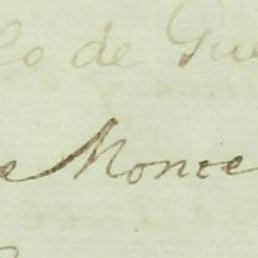 lo de Gue
e Monce